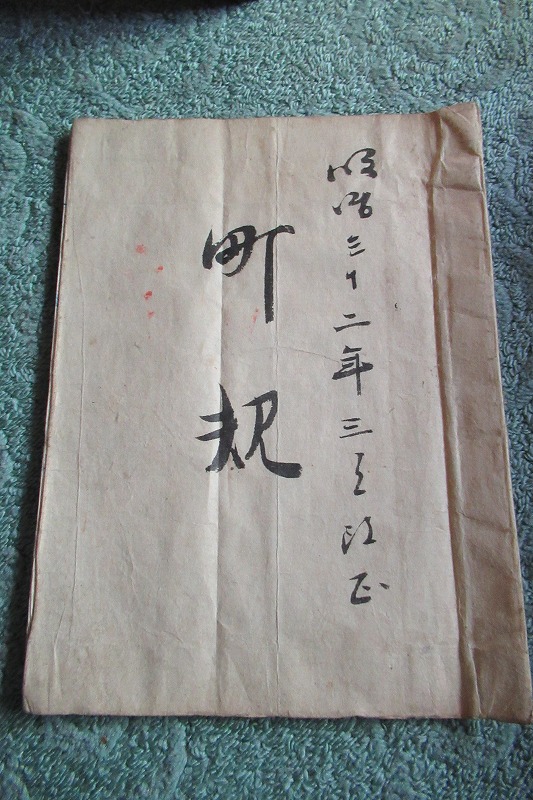 明治三十二年三月改正
町規